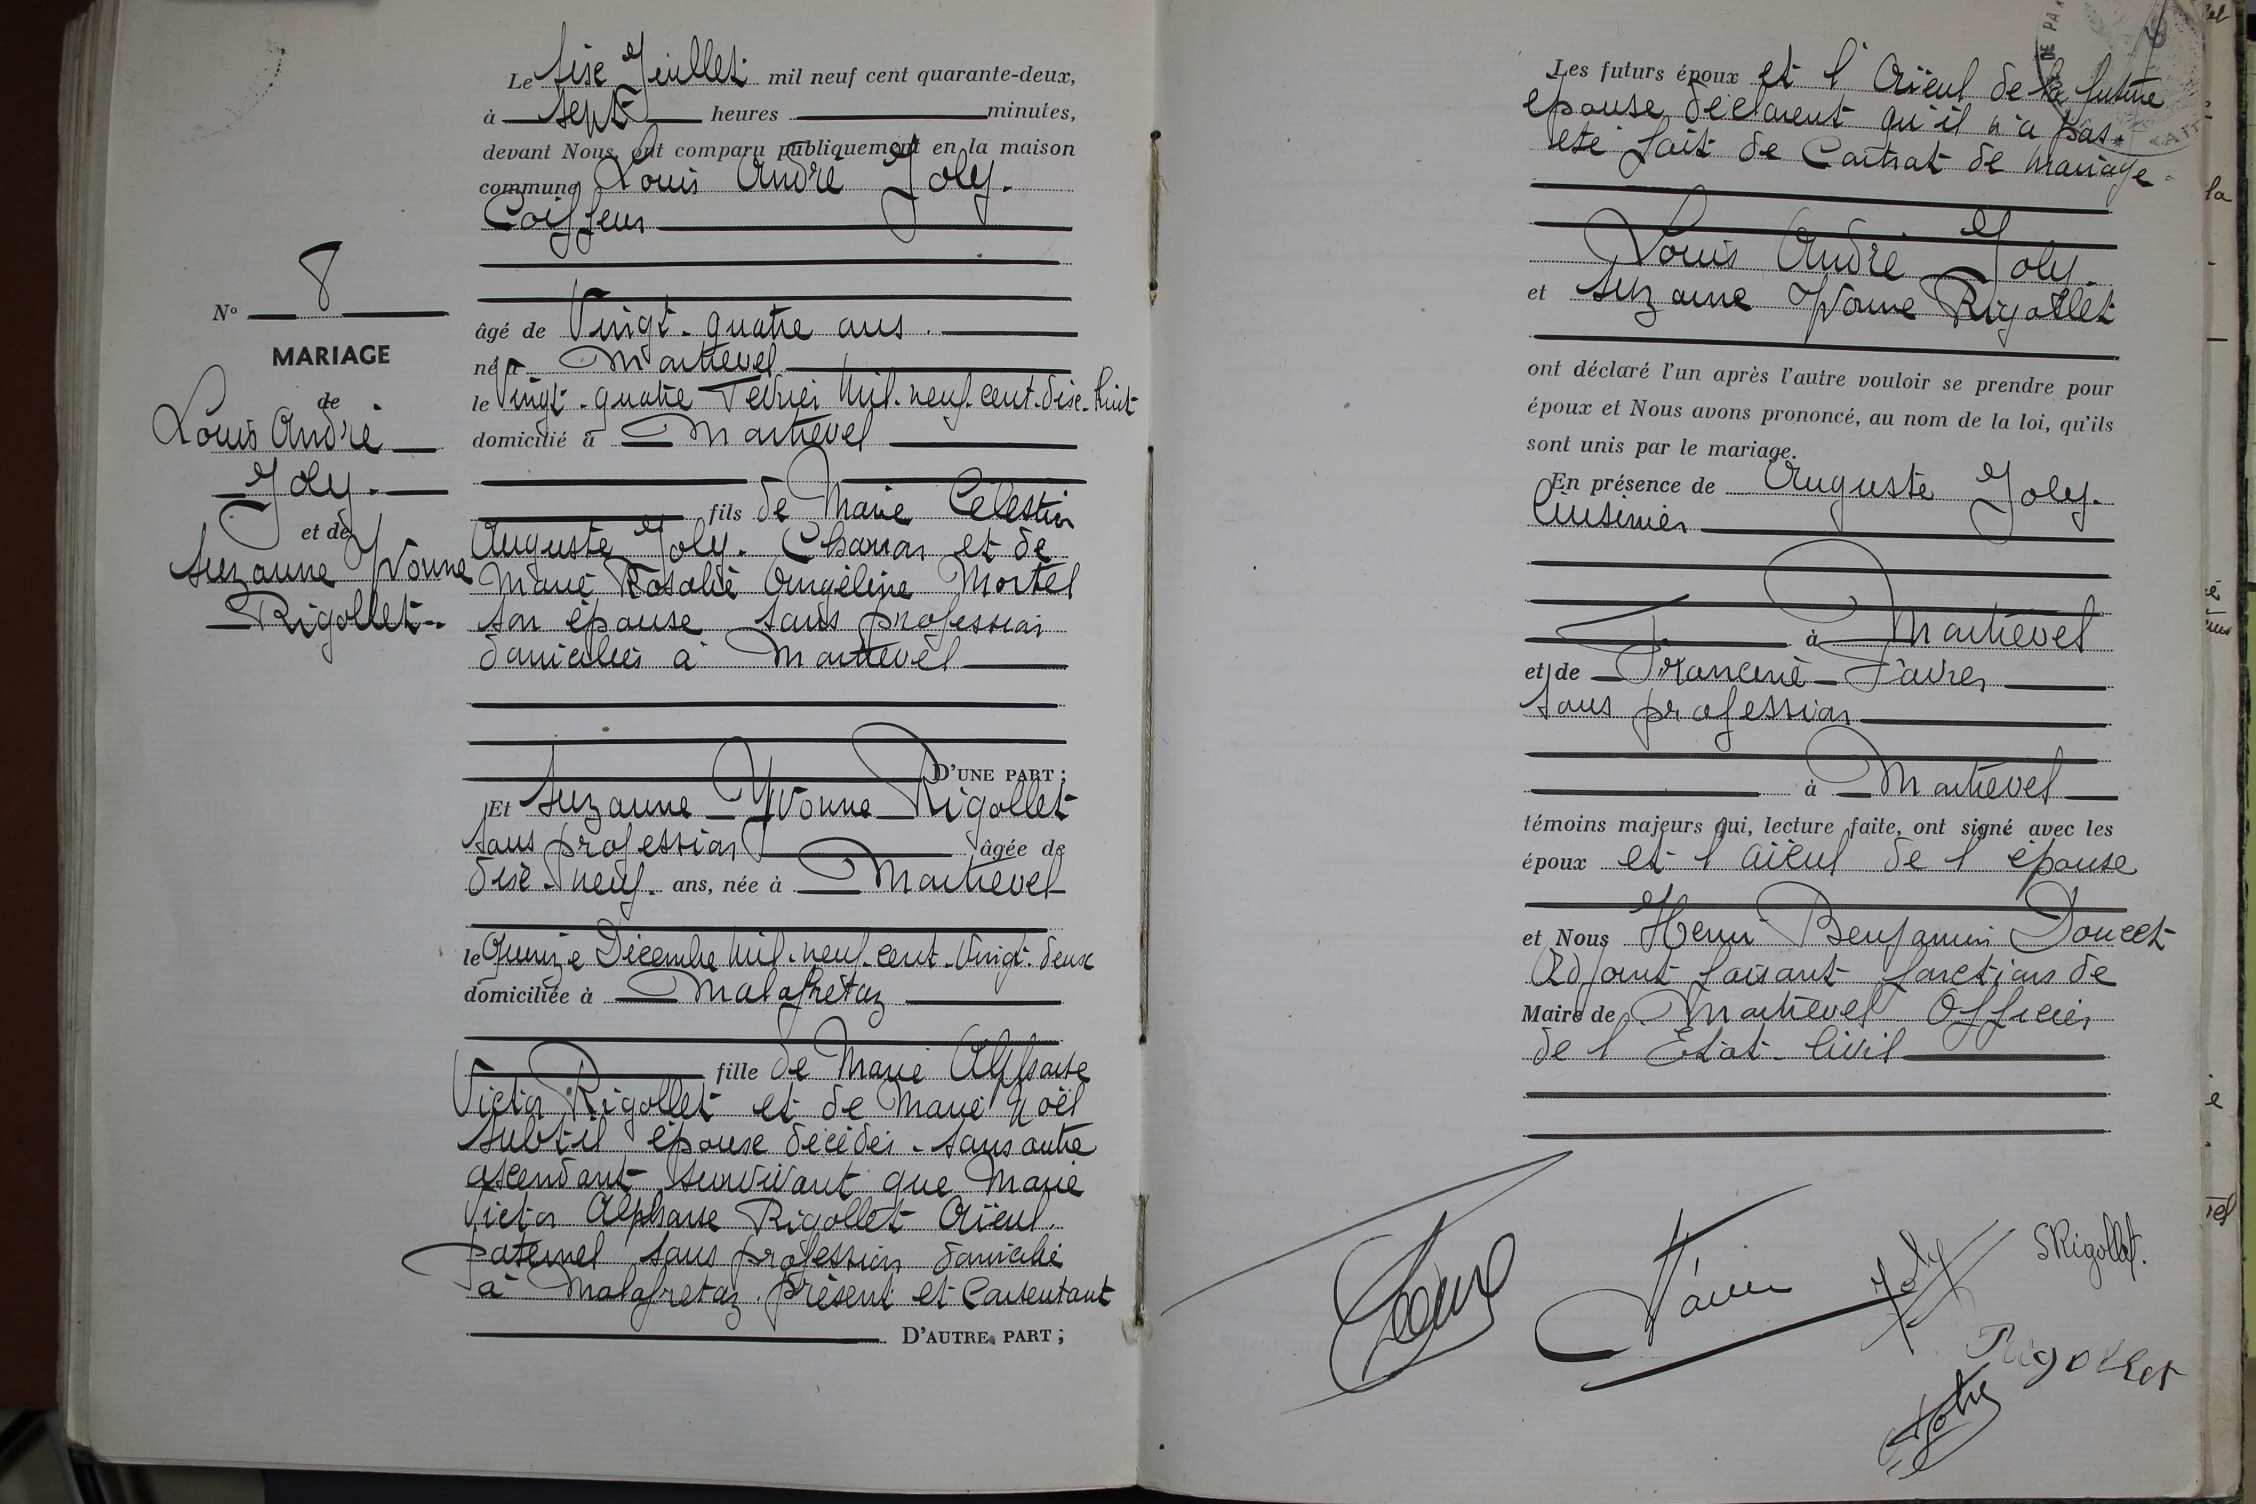 N° 8
MARIAGE
de
Louis André
Joly.
et de
Suzanne Yvonne
Rigollet.
Le six Juillet mil neuf cent quarante-deux,
à sept heures minutes,
devant Nous, ont comparu publiquement en la maison
commune Louis André Joly.
Coiffeur
âgé de Vingt-quatre ans.
né à Montrevel
le Vingt-quatre Février Mil-neuf-cent-dix-huit
domicilié à Montrevel
fils de Marie Célestin
Auguste Joly. Charron et de
Marie Rosalie Angéline Mortel
son épouse sans profession
domiciliés à Montrevel
D'UNE PART ;
Et Suzanne Yvonne Rigollet
sans profession âgée de
dix-neuf ans, née à Montrevel
le Quinze Décembre Mil-neuf-cent-Vingt-deux
domiciliée à Malafretaz
fille de Marie Alphonse
Victor Rigollet et de Marie Noël
Subtil épouse décédés. sans autre
ascendant survivant que Marie
Victor Alphonse Rigollet Aïeul
paternel sans profession domicilié
à Malafretaz. Présent et Consentant
D'AUTRE PART ;
DE PA
Les futurs époux et l'Aïeul de la future
épouse déclarent qu'il n'a pas
été fait de Contrat de mariage.
Louis André Joly.
et Suzanne Yvonne Rigollet
ont déclaré l'un après l'autre vouloir se prendre pour
époux et Nous avons prononcé, au nom de la loi, qu'ils
sont unis par le mariage.
En présence de Auguste Joly.
Cuisinier
à Montrevel
et de Francine Favier
sans profession
à Montrevel
témoins majeurs qui, lecture faite, ont signé avec les
époux et l'aïeul de l'épouse
et Nous Henri Benjamin Doucet
Adjoint faisant fonctions de
Maire de Montrevel Officier
de l'Etat-Civil
Favier
Joly
SRigollet.
Rigollet
Joly